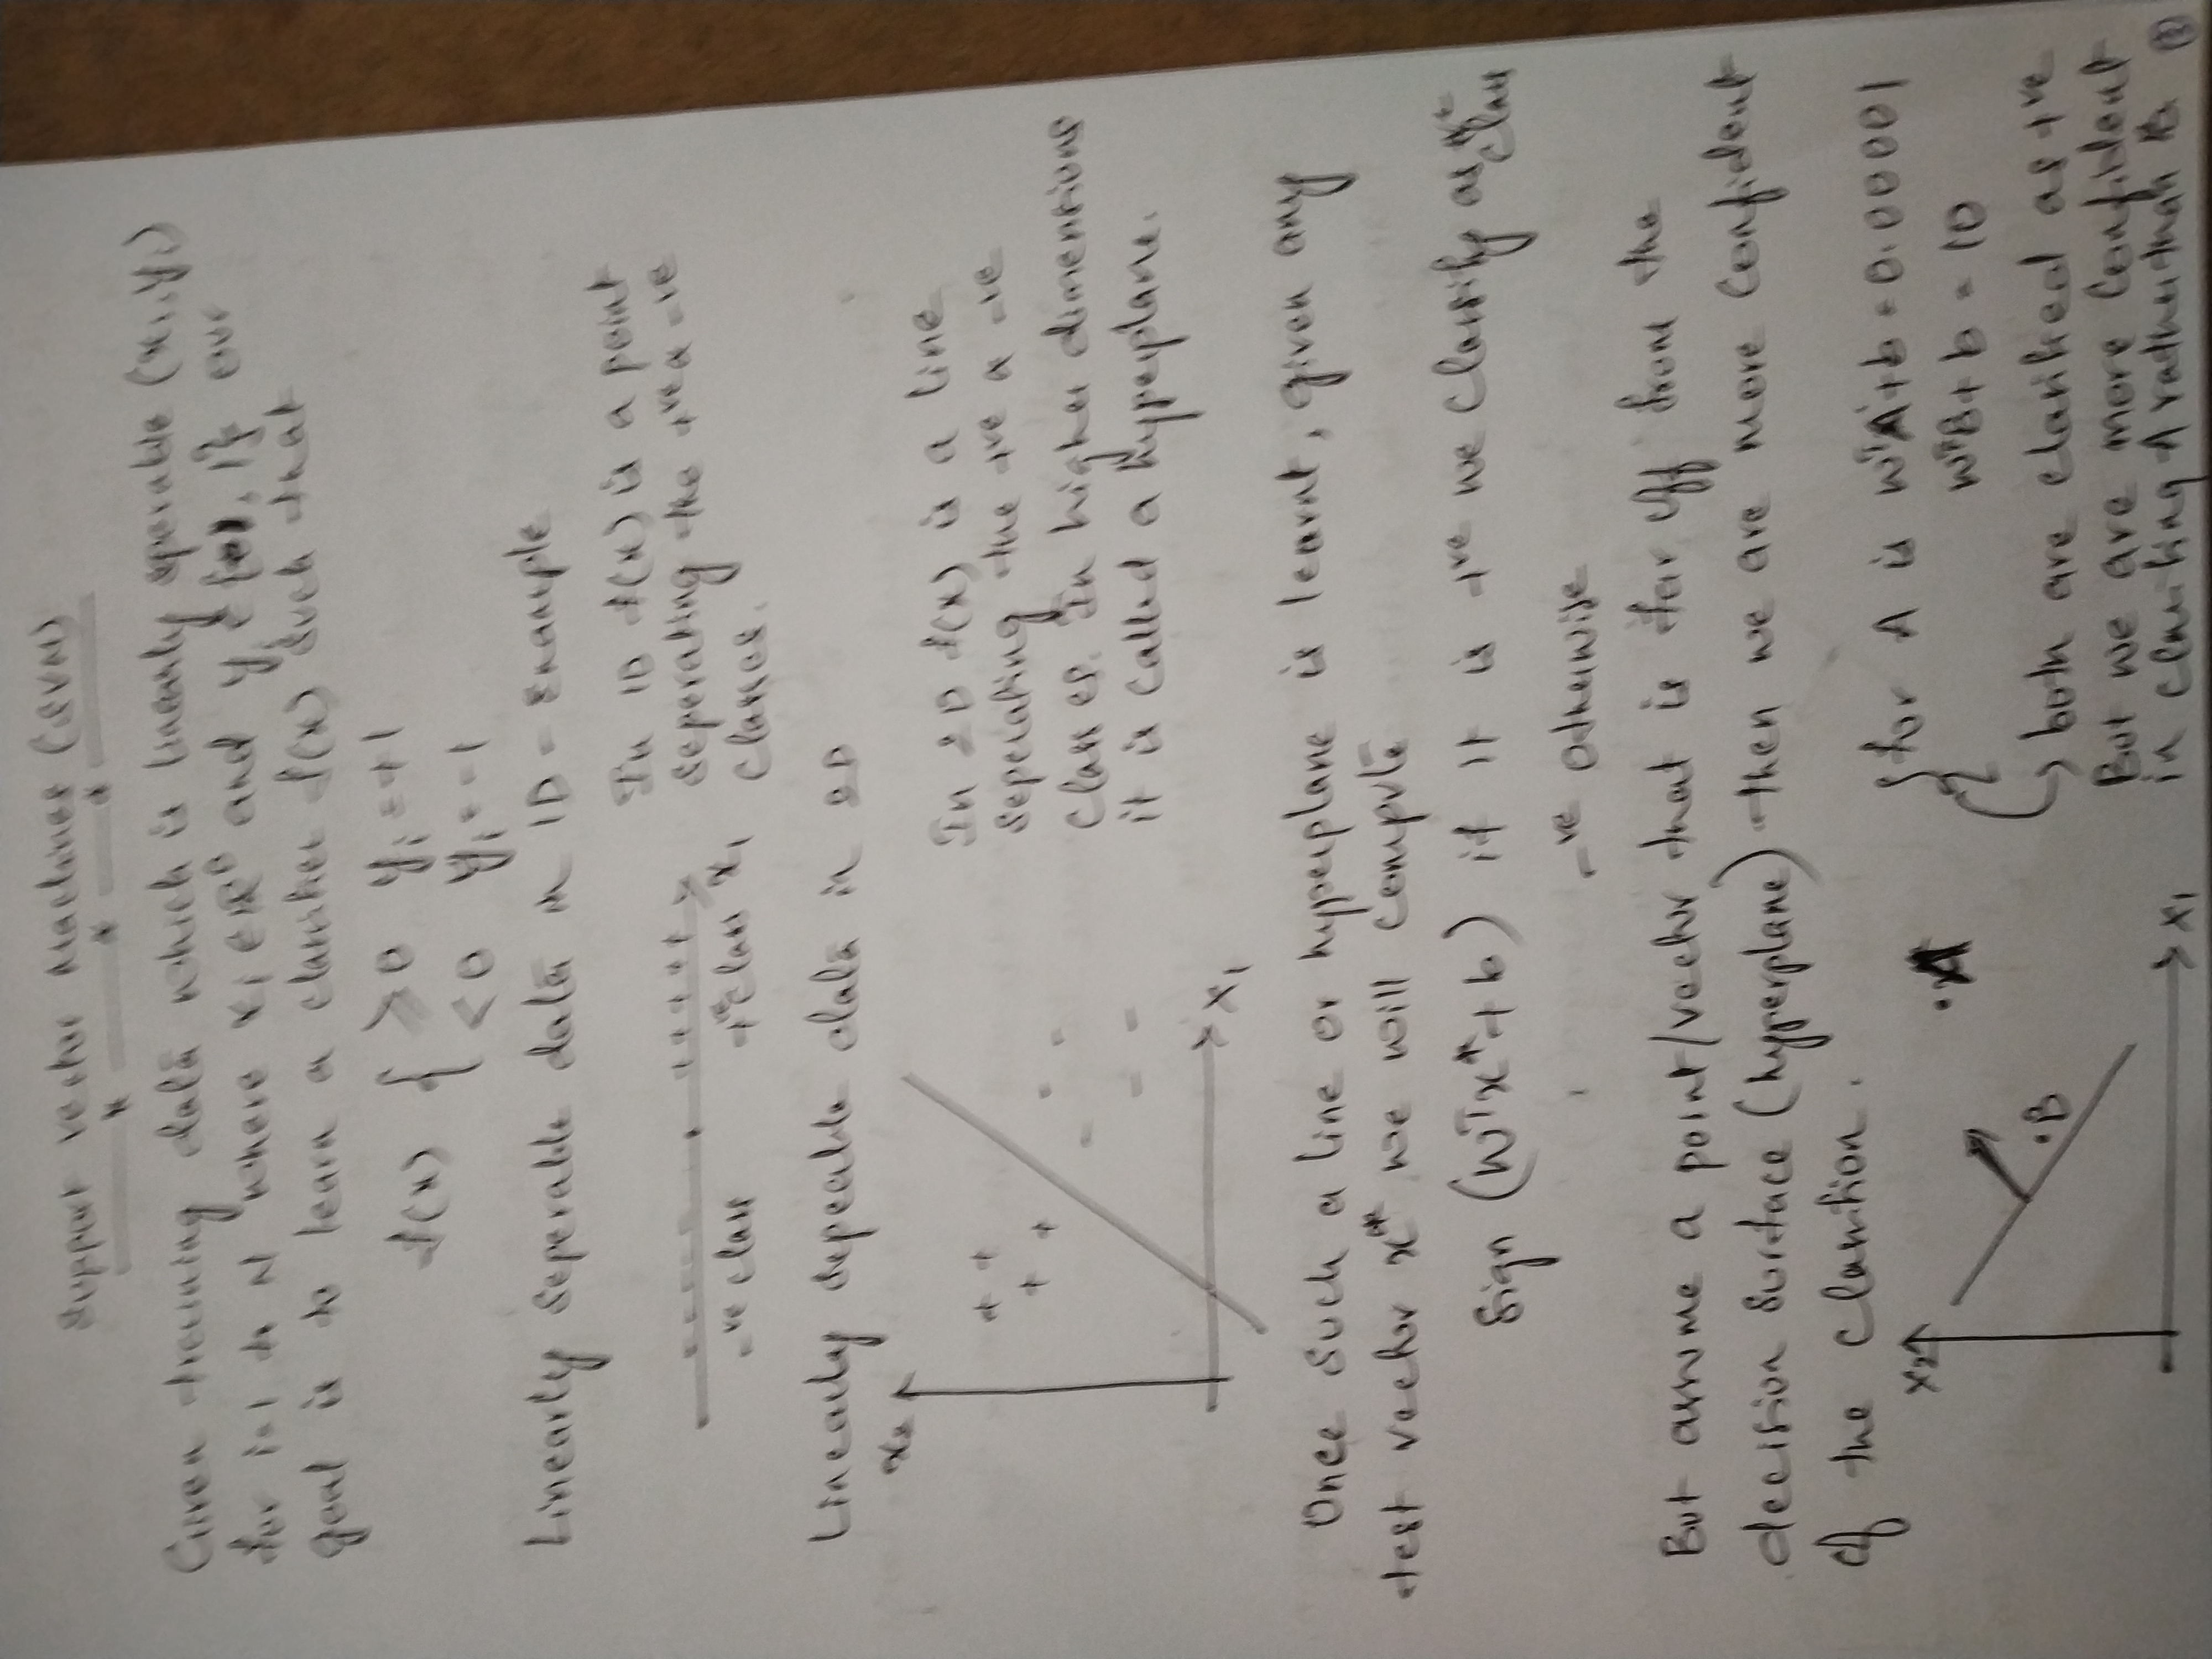 Support Vector Machines (SVM)
Given training data which is linearly seperable (xi, yi)
for i=1 to N where xi ∈ ℝᴰ and yi ∈ {-1, 1} our
goal is to learn a classifier f(x) such that
f(x) { ≥0 yi = +1
<0 yi = -1
Linearly Seperable data in 1D - Example
In 1D f(x) is a point
seperating the +ve & -ve
classes.
- - - - - - + + + + +
-ve class +ve class x1
Linearly sepeable data in 2D
x2
+ +
+ +
- -
-
- -
x1
In 2D f(x) is a line
seperating the +ve & -ve
classes. In higher dimensions
it is called a hyperplane.
Once such a line or hyperplane is learnt, given any
test vector x* we will compute
Sign (WᵀX* + b) if it is +ve we classify as +ve
class
-ve otherwise
But assume a point/vector that is far off from the
decision surface (hyperplane) then we are more confident
of the
x2
.A
.B
x1
for A is WᵀA + b = 0.00001
WᵀB + b = 10
both are classified as +ve
But we are more confident
in A rather than B